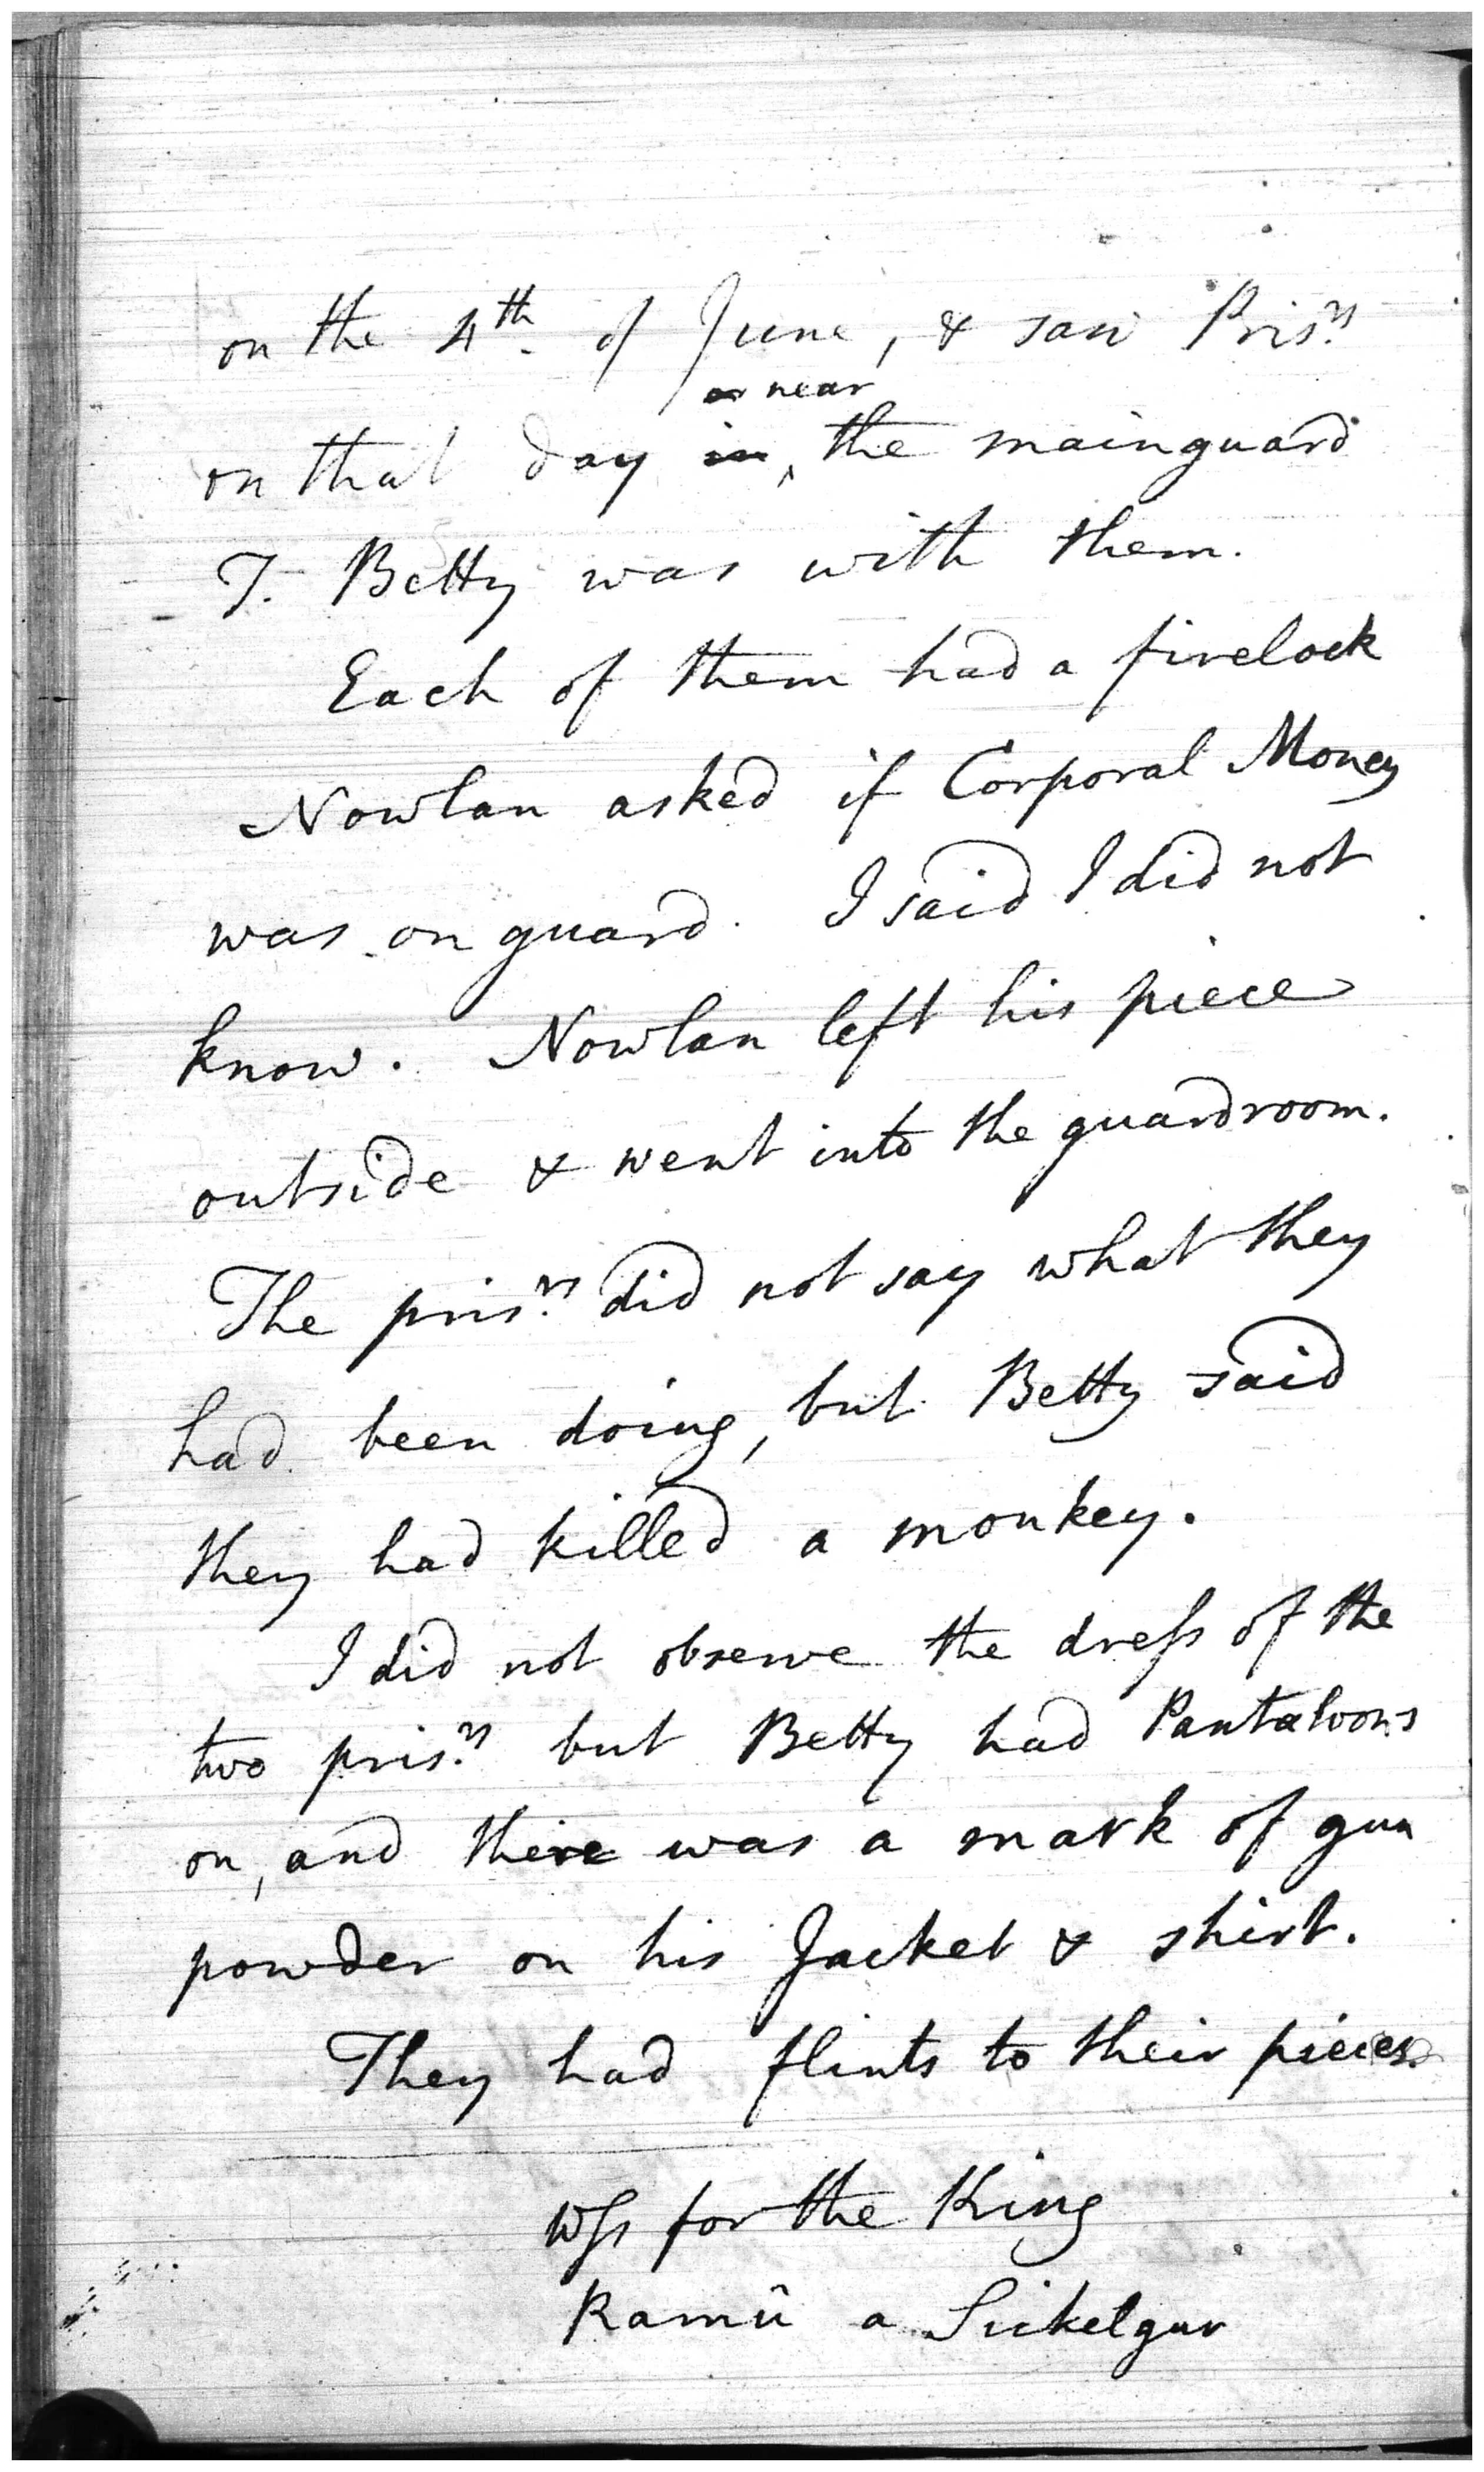 on the 4th. of June, & saw Prisrs
or near
on that day in the mainguard
T. Betty was with them.
Each of them had a firelock
Nowlan asked if Corporal Money
was on guard. I said I did not
know. Nowlan left his piece
outside & went into the guardroom.
The prisrs did not say what they
had been doing, but Betty said
they had killed a monkey.
I did not observe the dress of the
two prisrs but Betty had Pantaloons
on, and there was a mark of gun
powder on his Jacket & shirt.
They had flints to their pieces.
Wss for the King
Ramû a Sickelgur